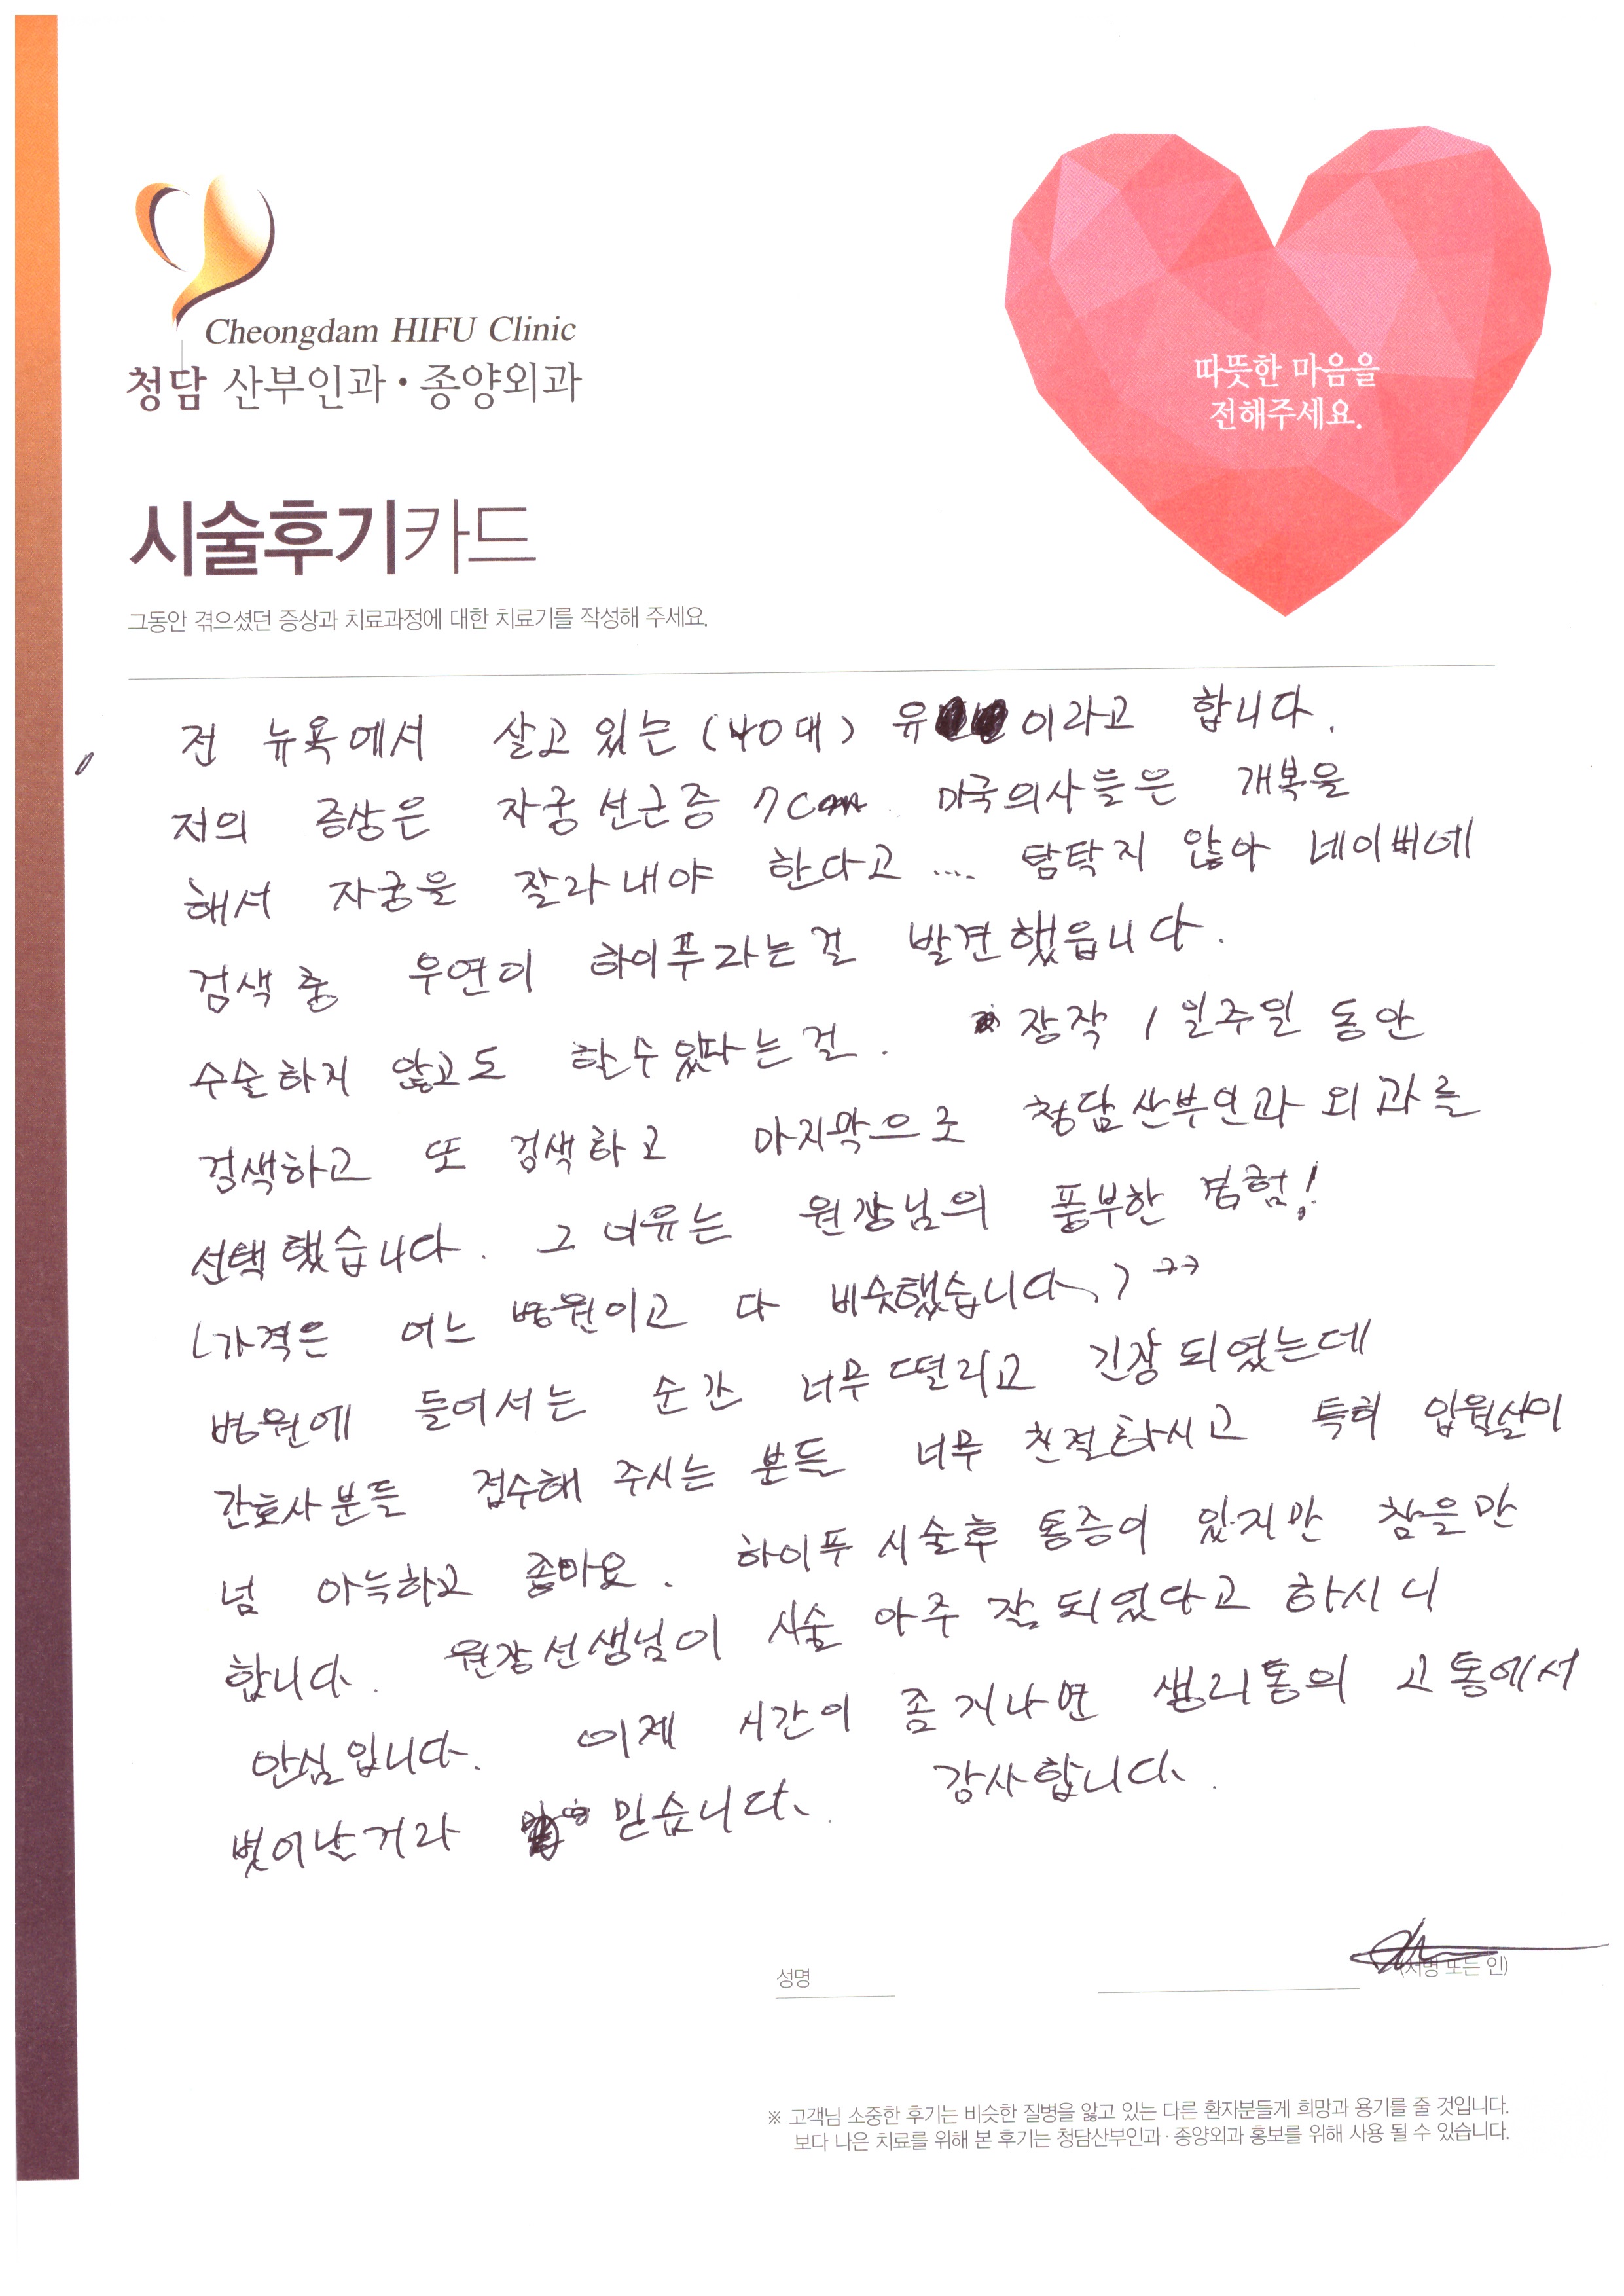 Cheongdam HIFU Clinic
청담 산부인과·종양외과
따뜻한 마음을
전해주세요.
시술후기카드
그동안 겪으셨던 증상과 치료과정에 대한 치료기를 작성해 주세요.
전 뉴욕에서 살고 있는 (40대) 유 이라고 합니다.
저의 증상은 자궁선근증 7cm. 미국의사들은 개복을
해서 자궁을 잘라내야 한다고.... 탐탁지 않아 네이버에
검색중 우연이 하이푸라는걸 발견했읍니다.
수술하지 않고도 할수있다는걸. 장작 1일주일 동안
검색하고 또 검색하고 마지막으로 청담산부인과 외과를
선택했습니다. 그 이유는 원장님의 풍부한 경험!
(가격은 어느 병원이고 다 비슷했습니다.) ㅋㅋ
병원에 들어서는 순간 너무 떨리고 긴장되였는데
간호사분들 접수해 주시는 분들 너무 친절하시고 특히 입원실이
넘 아늑하고 좋아요. 하이푸 시술후 통증이 있지만 참을만
합니다. 원장선생님이 시술 아주 잘 되었다고 하시니
안심입니다. 이제 시간이 좀 지나면 생리통의 고통에서
벗어날거라 믿습니다. 감사합니다.
성명 (서명 또는 인)
※ 고객님 소중한 후기는 비슷한 질병을 앓고 있는 다른 환자분들게 희망과 용기를 줄 것입니다.
보다 나은 치료를 위해 본 후기는 청담산부인과·종양외과 홍보를 위해 사용 될 수 있습니다.